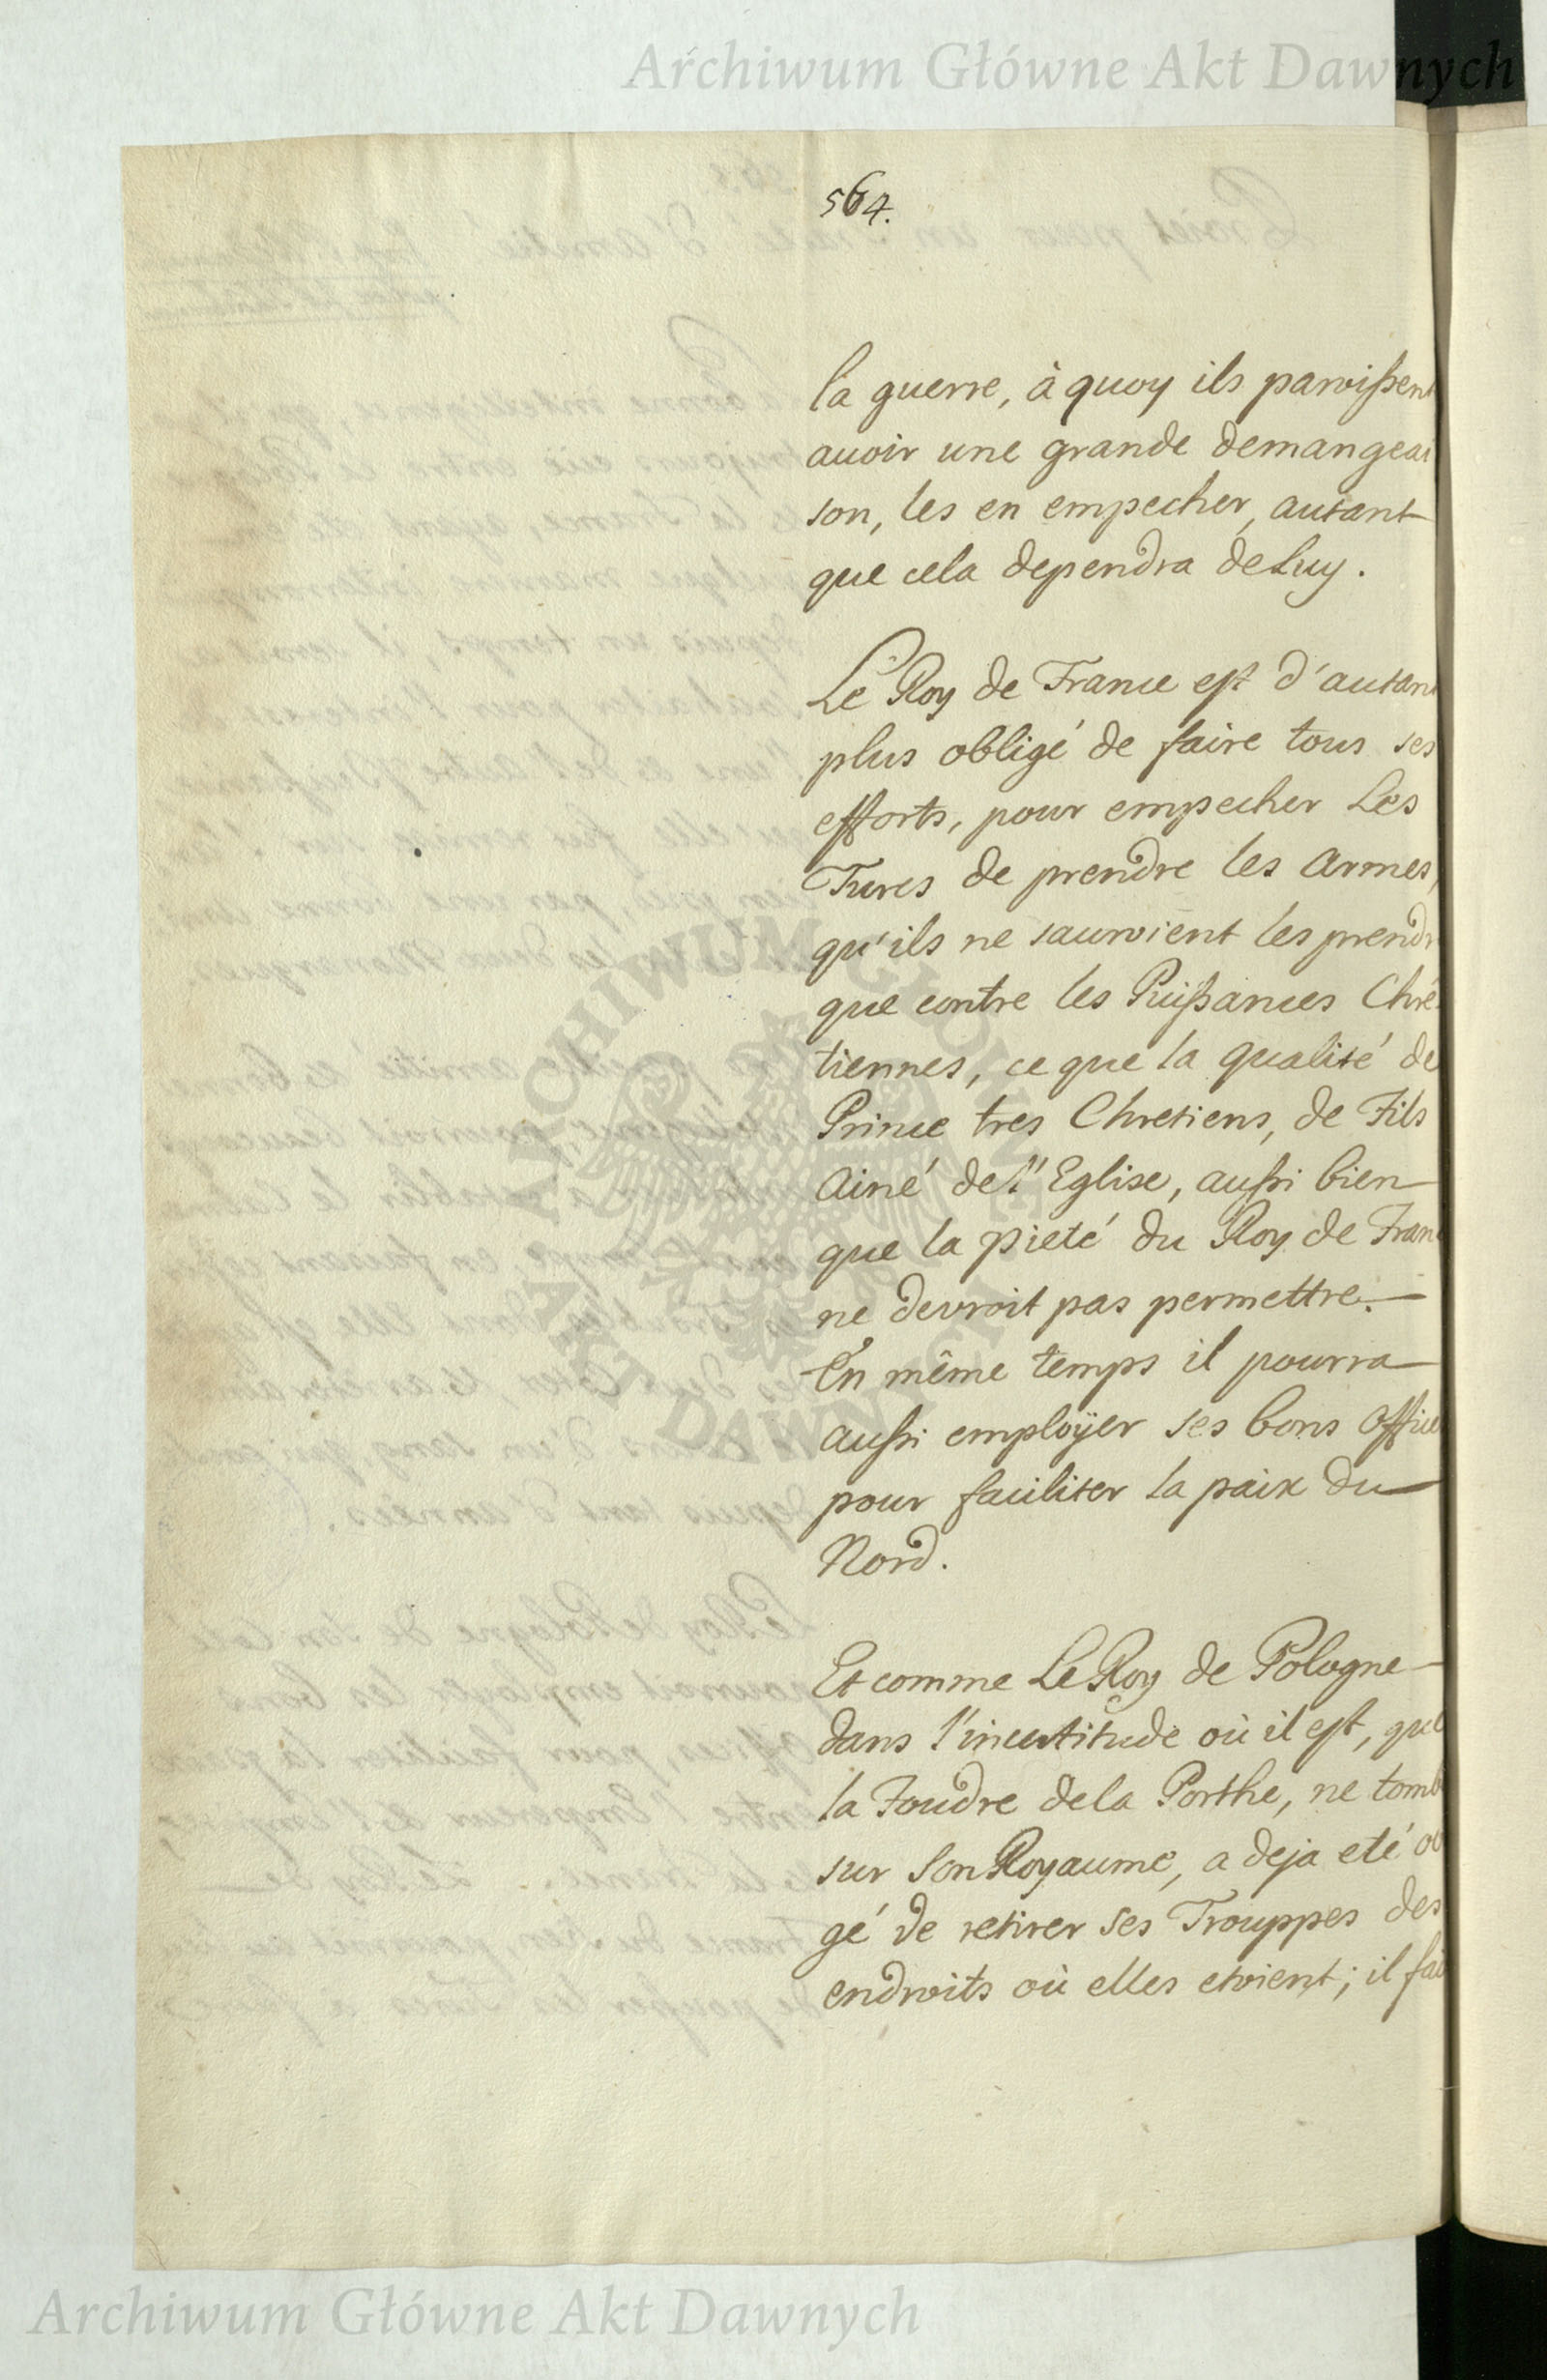 Archiwum Główne Akt Dawnych
564.
la guerre, à quoy ils paroissent
auoir une grande demangeai
son, les en empecher, autant
que cela dependra de Luy.
Le Roy de France est d'autant
plus obligé de faire tous ses
efforts, pour empecher Les
Turcs de prendre les armes,
qu'ils ne sauroient les prendr
que contre les Puissances Chré
tiennes, ce que la qualité de
Prince tres Chretiens, de Fils
Ainé de l'Eglise, aussi bien
que la pieté du Roy de Franc
ne devroit pas permettre.
En même temps il pourra
aussi employer ses bons Office
pour faciliter la paix du
Nord.
Et comme Le Roy de Pologne
dans l'incertitude où il est, que
la Foudre de la Porthe, ne tomb
sur Son Royaume, a deja eté ob
gé de retirer ses Trouppes des
endroits où elles etoient; il fai
ARCHIWUM GŁÓWNE AKT DAWNYCH
Archiwum Główne Akt Dawnych